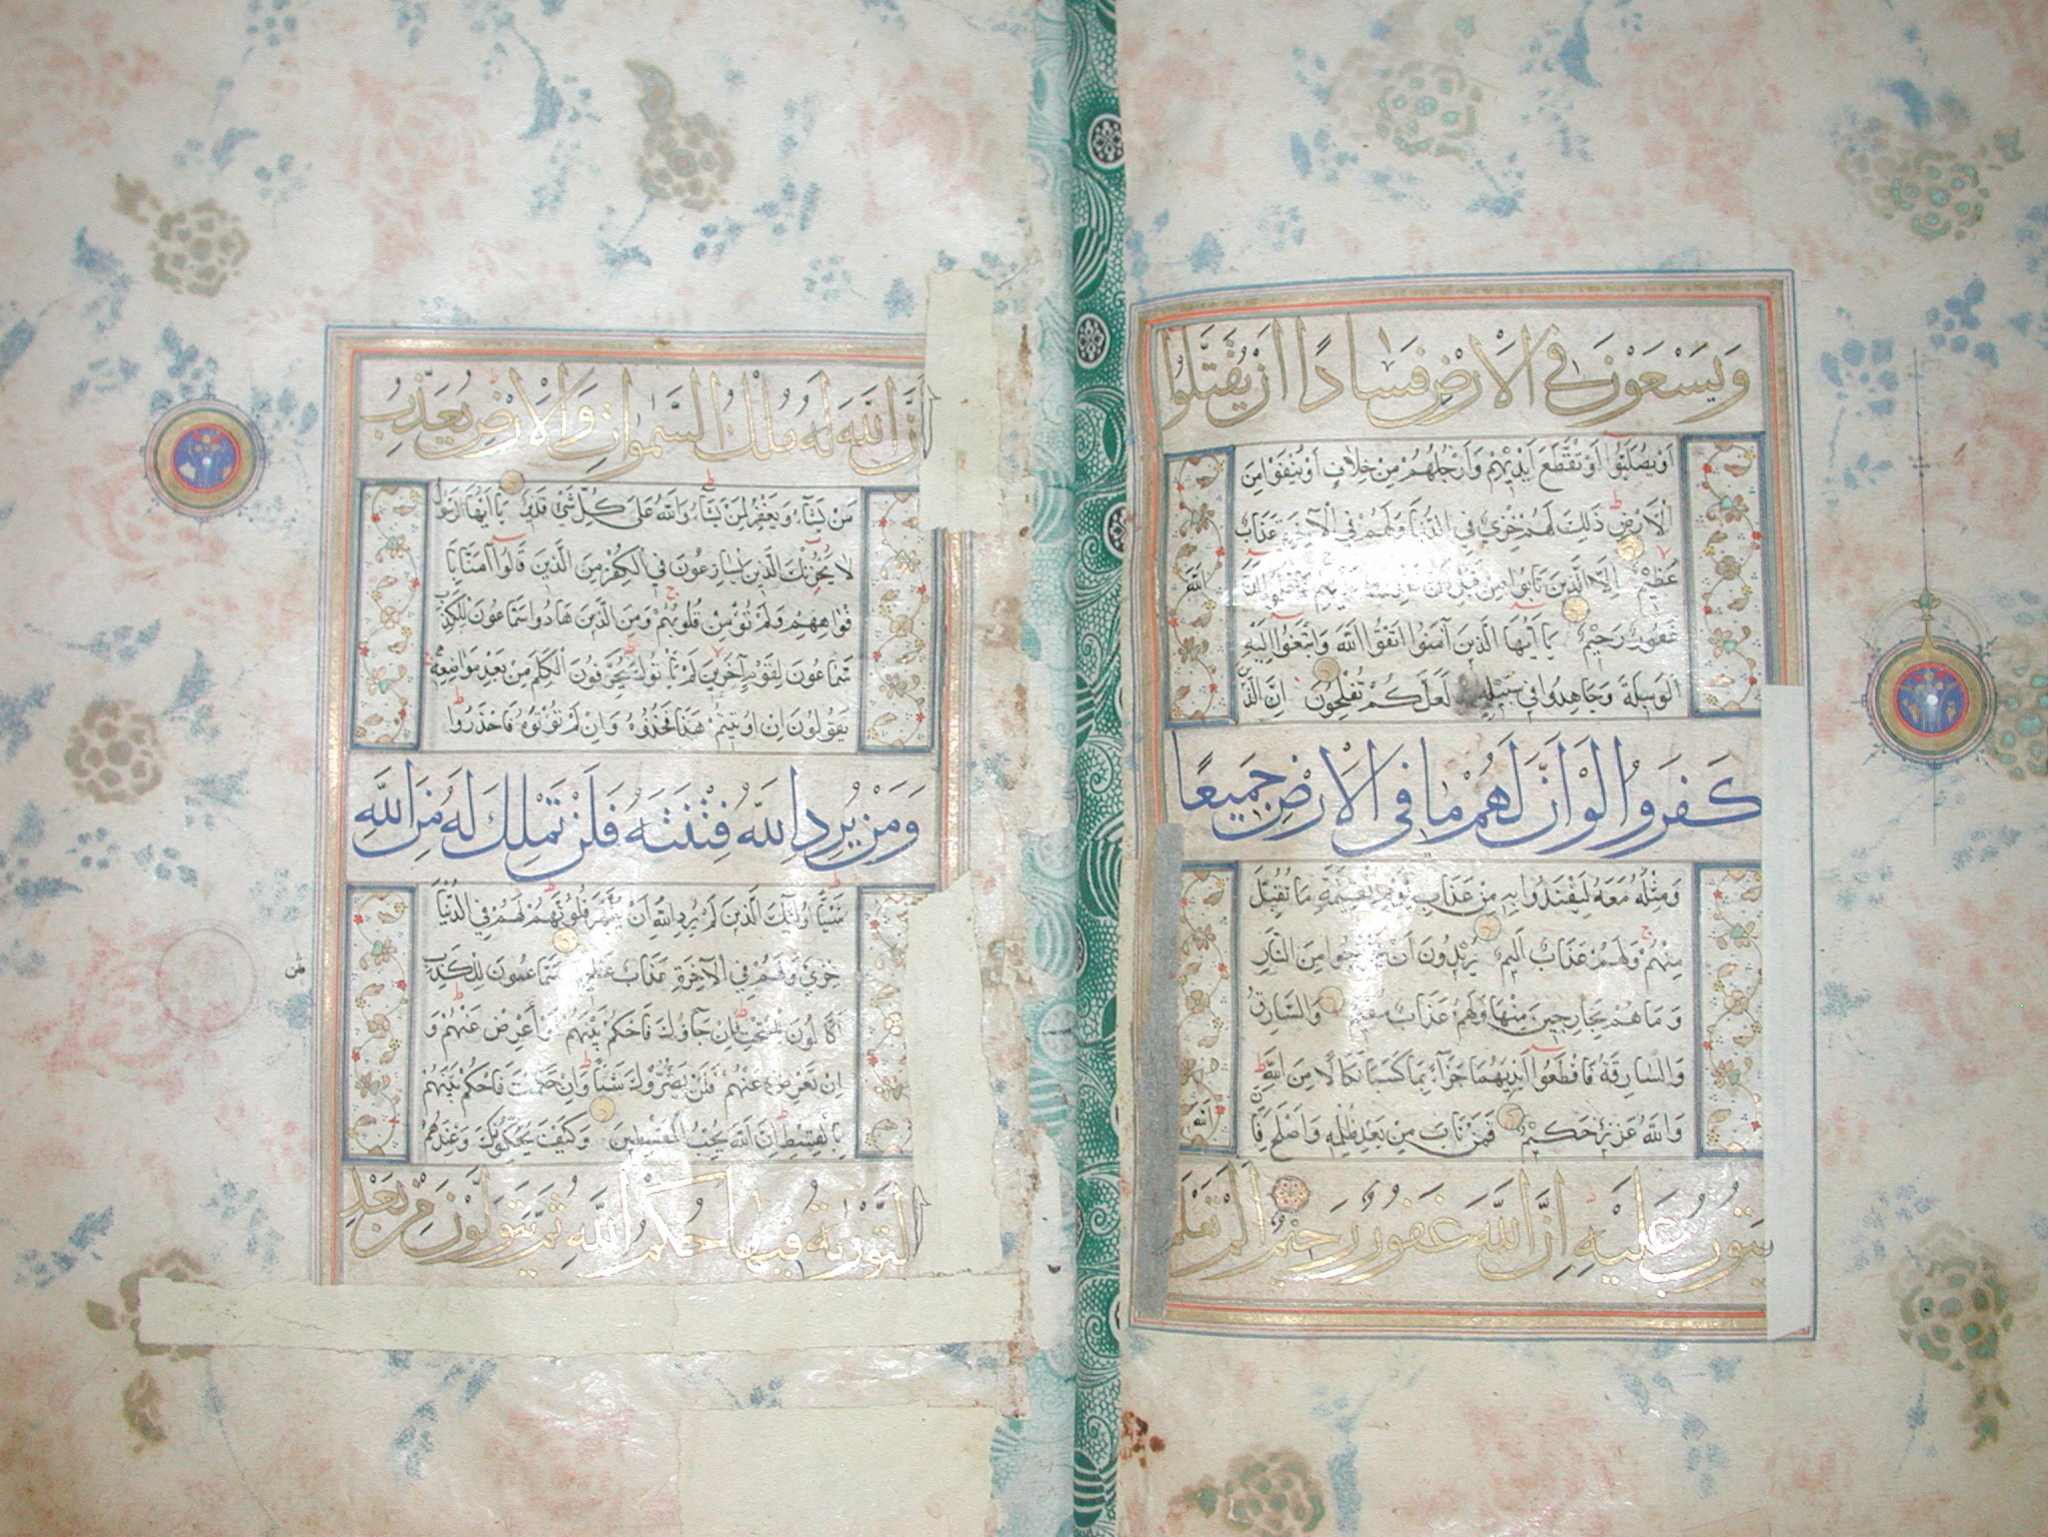 وَيَسْعَوْنَ فِي الْأَرْضِ فَسَادًا أَنْ يُقَتَّلُوا
أَوْ يُصَلَّبُوا أَوْ تُقَطَّعَ أَيْدِيهِمْ وَأَرْجُلُهُمْ مِنْ خِلَافٍ أَوْ يُنْفَوْا مِنَ
الْأَرْضِ ذَلِكَ لَهُمْ خِزْيٌ فِي الدُّنْيَا وَلَهُمْ فِي الْآخِرَةِ عَذَابٌ
عَظِيمٌ إِلَّا الَّذِينَ تَابُوا مِنْ قَبْلِ أَنْ اللَّهَ
غَفُورٌ رَحِيمٌ يَا أَيُّهَا الَّذِينَ آمَنُوا اتَّقُوا اللَّهَ وَابْتَغُوا إِلَيْهِ
الْوَسِيلَةَ وَجَاهِدُوا فِي سَبِيلِهِ لَعَلَّكُمْ تُفْلِحُونَ إِنَّ الَّذِينَ
كَفَرُوا لَوْ أَنَّ لَهُمْ مَا فِي الْأَرْضِ جَمِيعًا
وَمِثْلَهُ مَعَهُ لِيَفْتَدُوا بِهِ مِنْ عَذَابِ يَوْمِ الْقِيَمَةِ مَا تُقُبِّلَ
مِنْهُمْ وَلَهُمْ عَذَابٌ أَلِيمٌ يُرِيدُونَ أَنْ يَخْرُجُوا مِنَ النَّارِ
وَمَا هُمْ بِخَارِجِينَ مِنْهَا وَلَهُمْ عَذَابٌ مُقِيمٌ وَالسَّارِقُ
وَالسَّارِقَةُ فَاقْطَعُوا أَيْدِيَهُمَا جَزَاءً بِمَا كَسَبَا نَكَالًا مِنَ اللَّهِ
وَاللَّهُ عَزِيزٌ حَكِيمٌ فَمَنْ تَابَ مِنْ بَعْدِ ظُلْمِهِ وَأَصْلَحَ فَإِنَّ اللَّهَ
يَتُوبُ عَلَيْهِ إِنَّ اللَّهَ غَفُورٌ رَحِيمٌ أَلَمْ تَعْلَمْ
أَنَّ اللَّهَ لَهُ مُلْكُ السَّمٰوَاتِ وَالْأَرْضِ يُعَذِّبُ
مَنْ يَشَاءُ وَيَغْفِرُ لِمَنْ يَشَاءُ وَاللَّهُ عَلَى كُلِّ شَيْءٍ قَدِيرٌ يَا أَيُّهَا الرَّسُولُ
لَا يَحْزُنْكَ الَّذِينَ يُسَارِعُونَ فِي الْكُفْرِ مِنَ الَّذِينَ قَالُوا آمَنَّا بِأَ
فْوَاهِهِمْ وَلَمْ تُؤْمِنْ قُلُوبُهُمْ وَمِنَ الَّذِينَ هَادُوا سَمَّاعُونَ لِلْكَذِبِ
سَمَّاعُونَ لِقَوْمٍ آخَرِينَ لَمْ يَأْتُوكَ يُحَرِّفُونَ الْكَلِمَ مِنْ بَعْدِ مَوَاضِعِهِ
يَقُولُونَ إِنْ أُوتِيتُمْ هَذَا فَخُذُوهُ وَإِنْ لَمْ تُؤْتَوْهُ فَاحْذَرُوا
وَمَنْ يُرِدِ اللَّهُ فِتْنَتَهُ فَلَنْ تَمْلِكَ لَهُ مِنَ اللَّهِ
شَيْئًا أُولَئِكَ الَّذِينَ لَمْ يُرِدِ اللَّهُ أَنْ يُطَهِّرَ قُلُوبَهُمْ لَهُمْ فِي الدُّنْيَا
خِزْيٌ وَلَهُمْ فِي الْآخِرَةِ عَذَابٌ عَظِيمٌ سَمَّاعُونَ لِلْكَذِبِ
أَكَّالُونَ لِلسُّحْتِ فَإِنْ جَاؤُكَ فَاحْكُمْ بَيْنَهُمْ أَوْ أَعْرِضْ عَنْهُمْ وَ
إِنْ تُعْرِضْ عَنْهُمْ فَلَنْ يَضُرُّوكَ شَيْئًا وَإِنْ حَكَمْتَ فَاحْكُمْ بَيْنَهُمْ
بِالْقِسْطِ إِنَّ اللَّهَ يُحِبُّ الْمُقْسِطِينَ وَكَيْفَ يُحَكِّمُونَكَ وَعِنْدَهُمُ
التَّوْرٰيةُ فِيهَا حُكْمُ اللَّهِ ثُمَّ يَتَوَلَّوْنَ مِنْ بَعْدِ